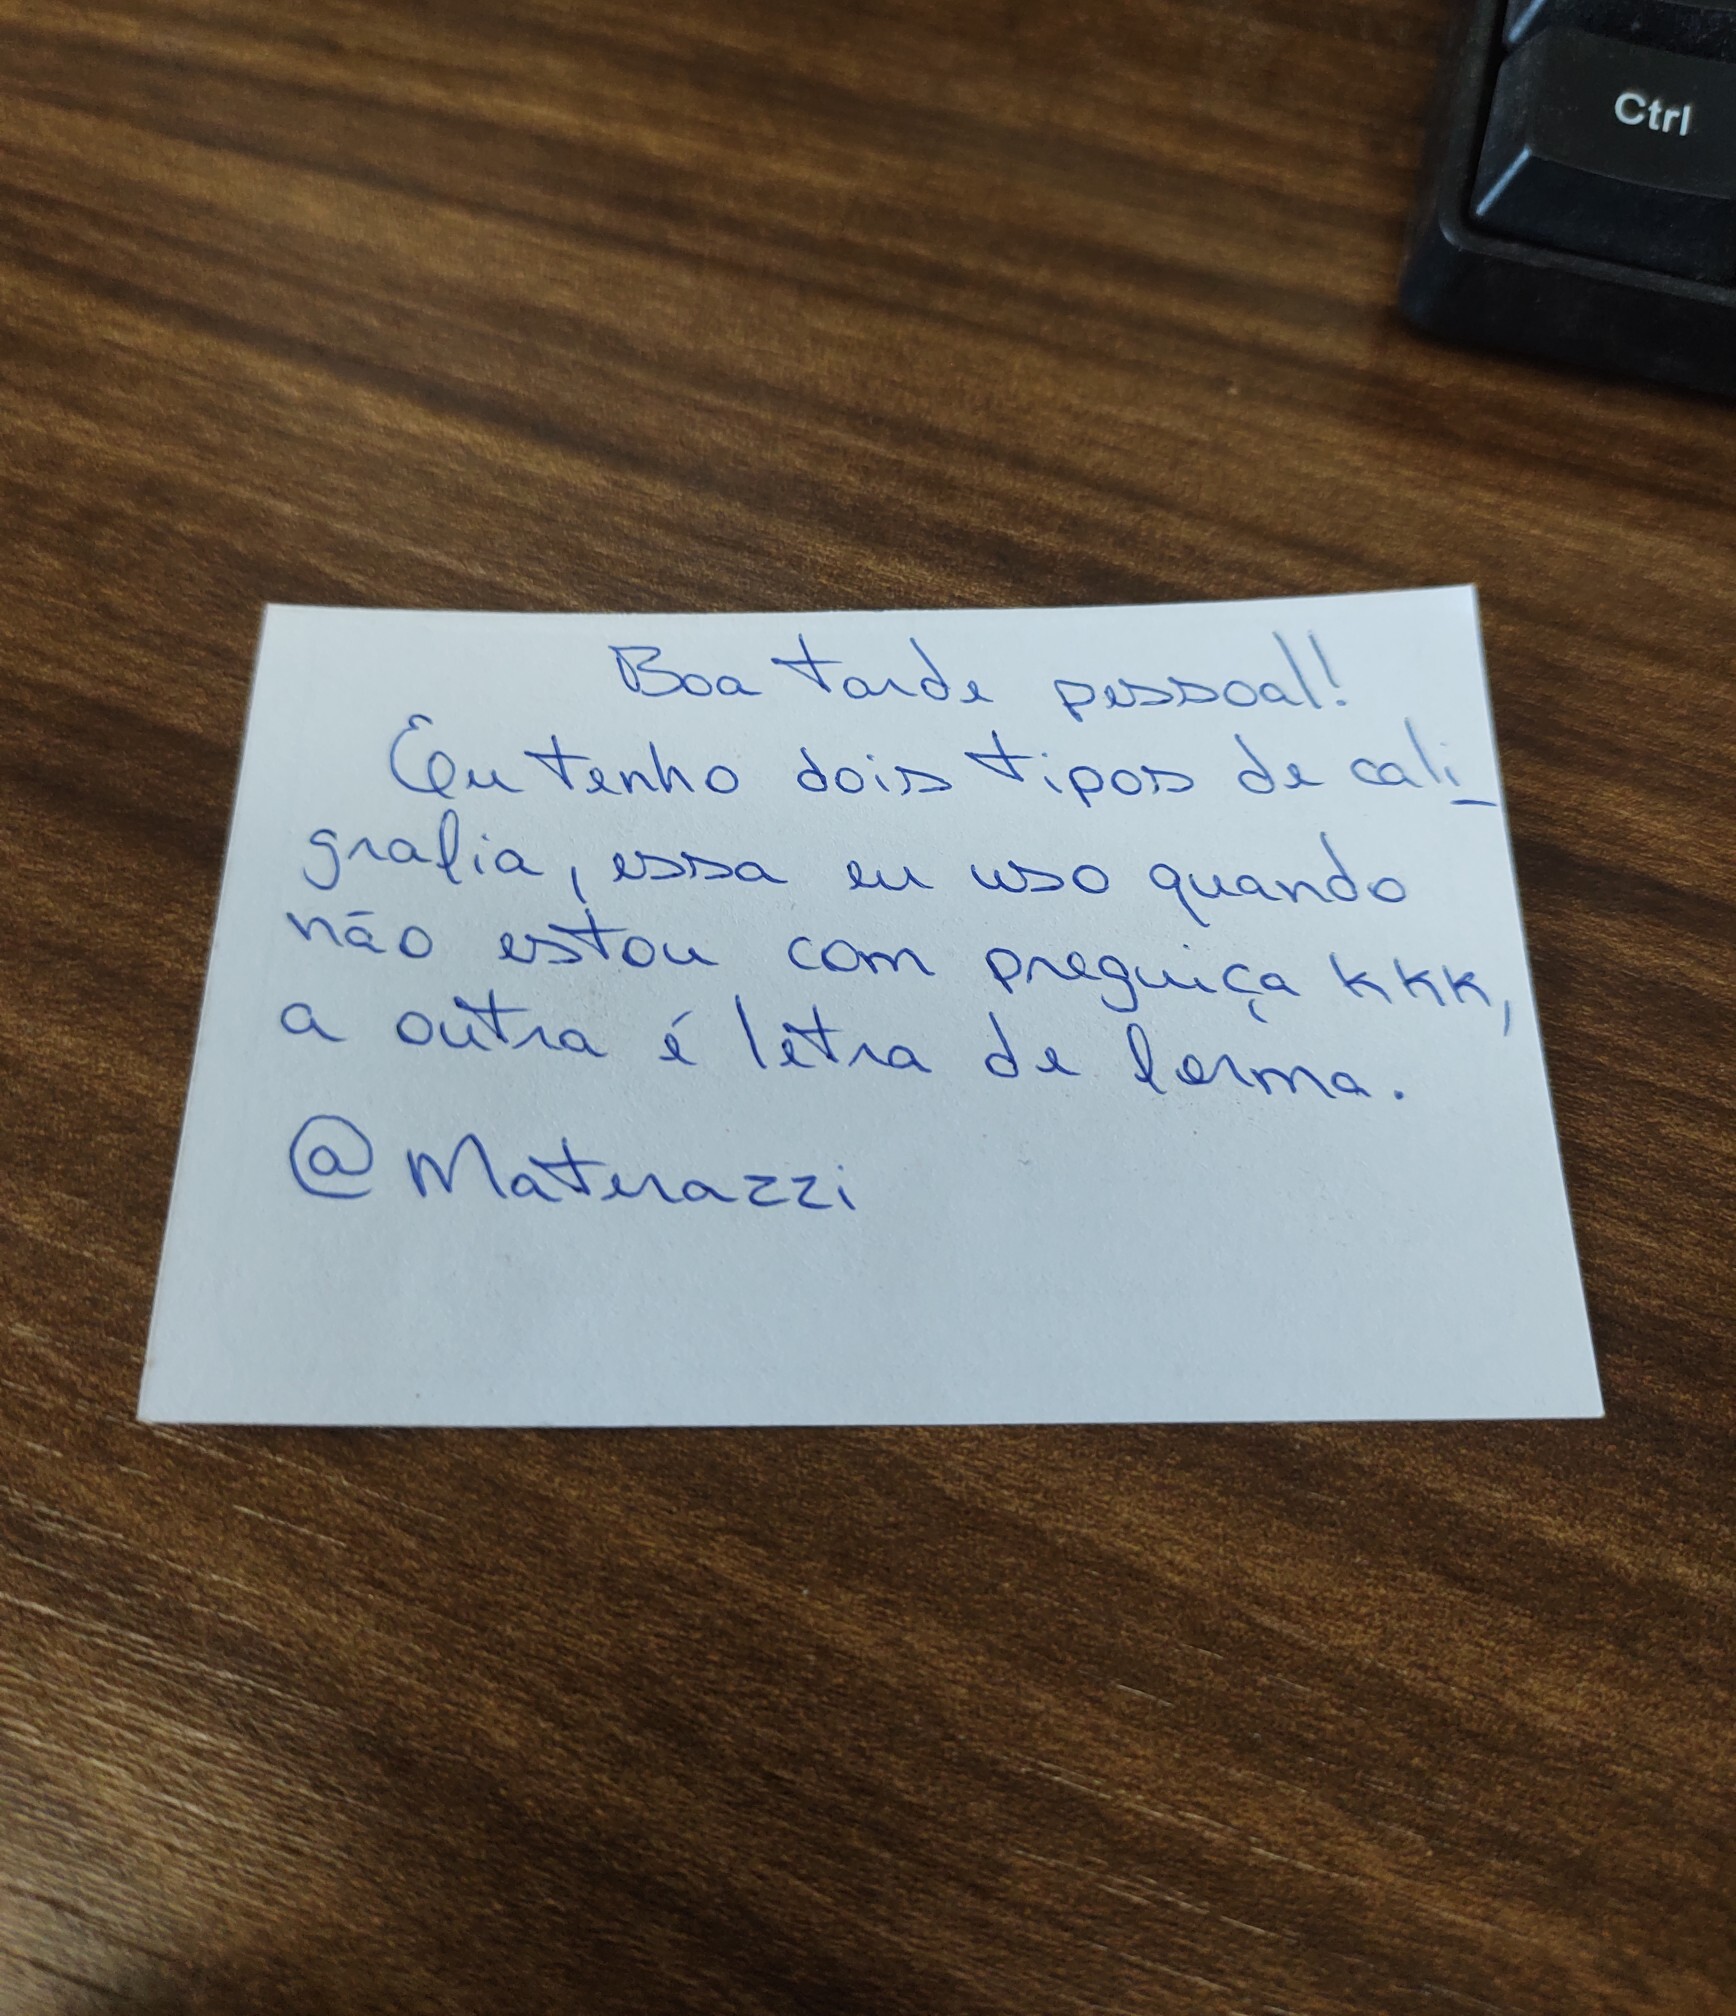 Ctrl
Boa tarde pessoal!
Eu tenho dois tipos de cali-
grafia, essa eu uso quando
não estou com preguiça kkk,
a outra é letra de forma.
@Materazzi